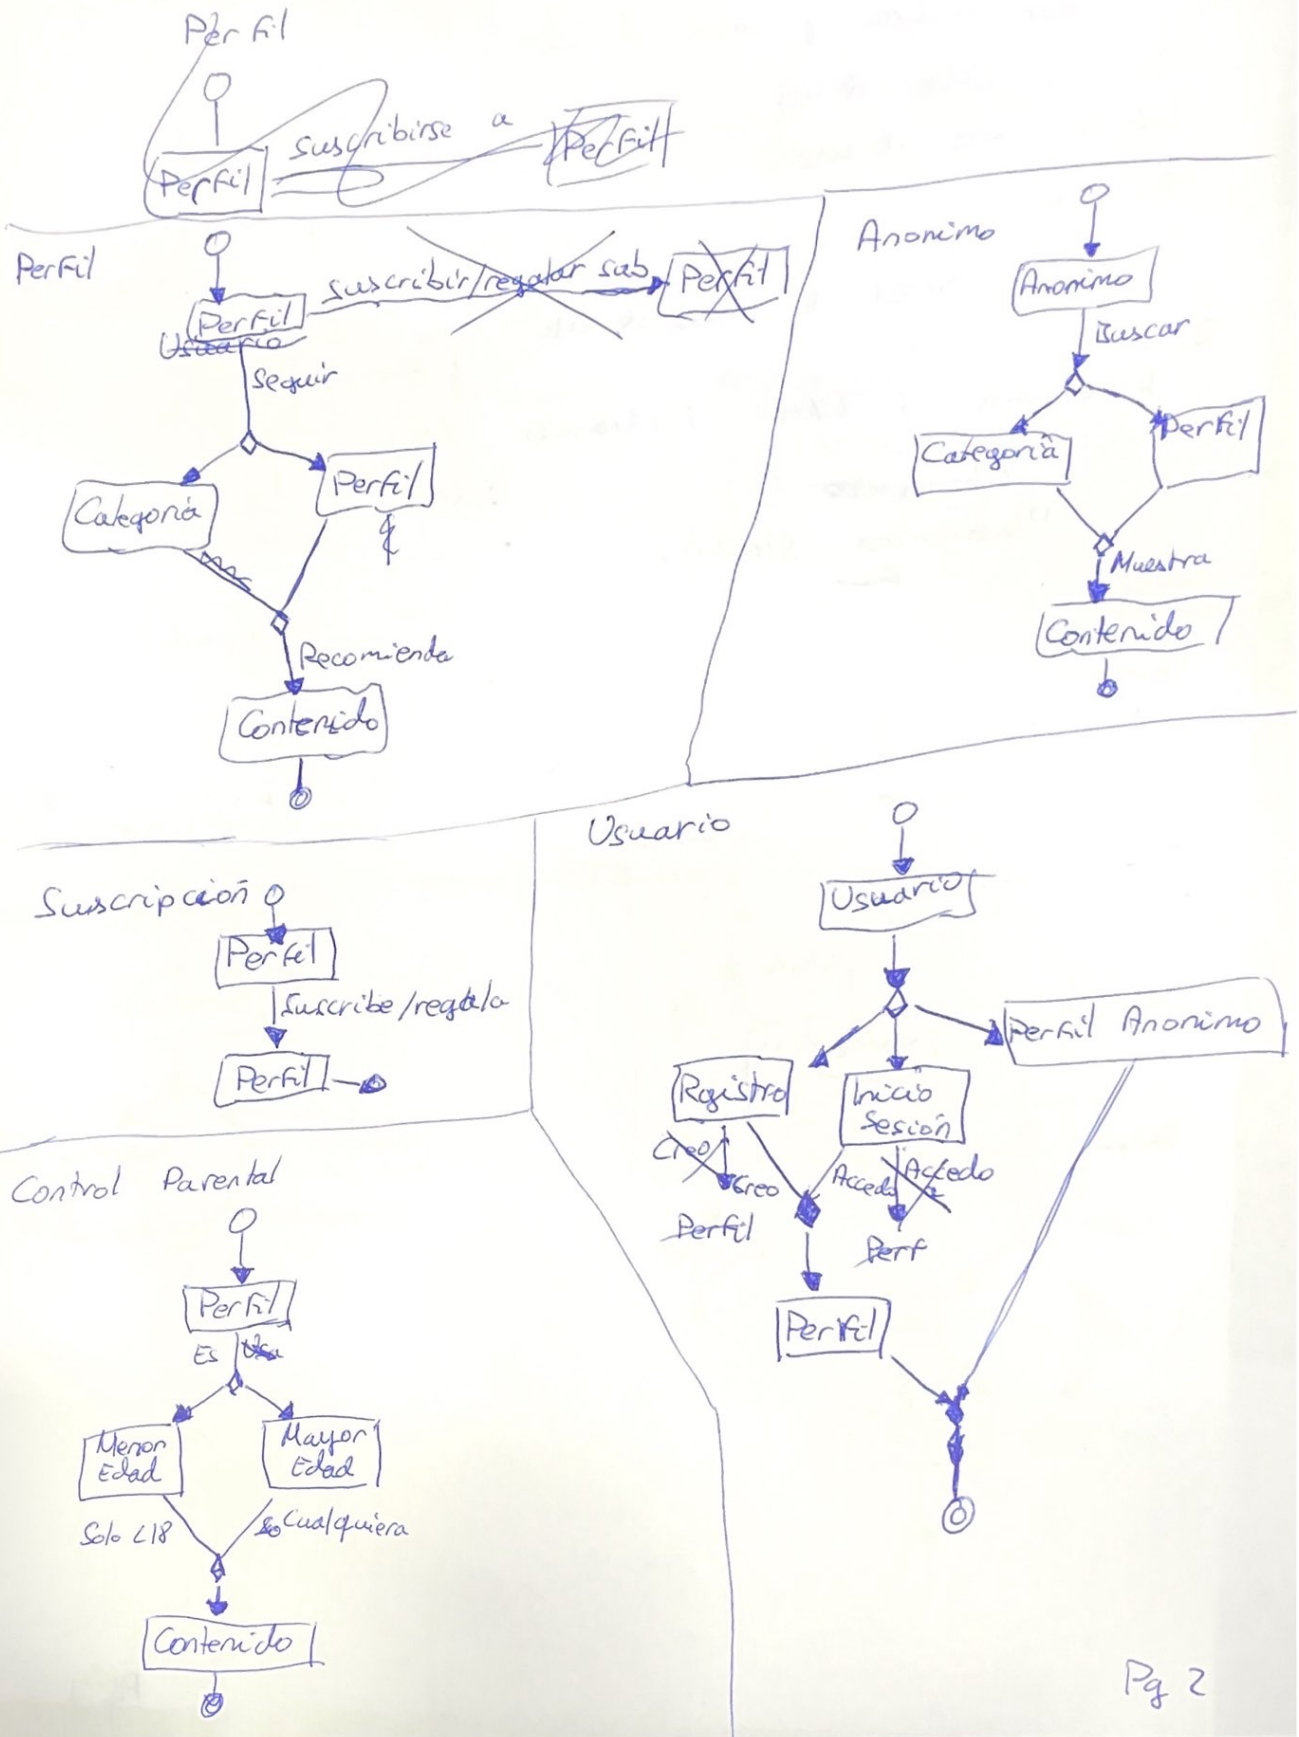 Perfil
suscribirse a
Perfil
Perfil
Perfil
Perfil
Usuario
suscribir/regalar sub
Perfil
Seguir
Categoria
Perfil
Recomienda
Contenido
Anonimo
Anonimo
Buscar
Categoria
Perfil
Muestra
Contenido
Suscripción
Perfil
Suscribe/regala
Perfil
Usuario
Usuario
Perfil Anonimo
Registro
Inicio
Sesión
Creo
Creo
Perfil
Accedo
Accedo
Perf
Perfil
Control Parental
Perfil
Es
Usa
Menor
Edad
Mayor
Edad
Solo <18
Cualquiera
Contenido
Pg 2